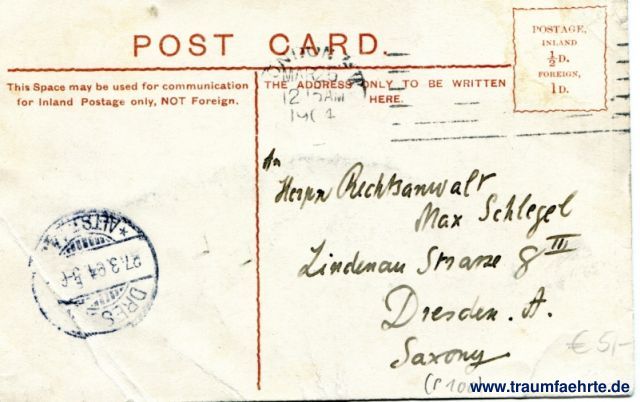 POST CARD.
POSTAGE,
INLAND
½D.
FOREIGN,
1D.
This Space may be used for communication
for Inland Postage only, NOT Foreign.
THE ADDRESS ONLY TO BE WRITTEN
HERE.
MAR 25
12 15 AM
An
Herrn Rechtsanwalt
Max Schlegel
Lindenau Strasse 8 III
Dresden. A.
Saxony
27.3.04.5-6
DRES
ALTST
€ 5,-
www.traumfaehrte.de